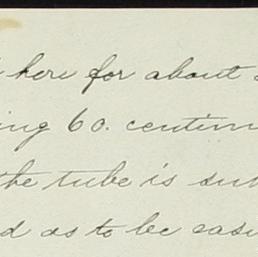 here for about
ing 60. centim
the tube is su
d as to be easi